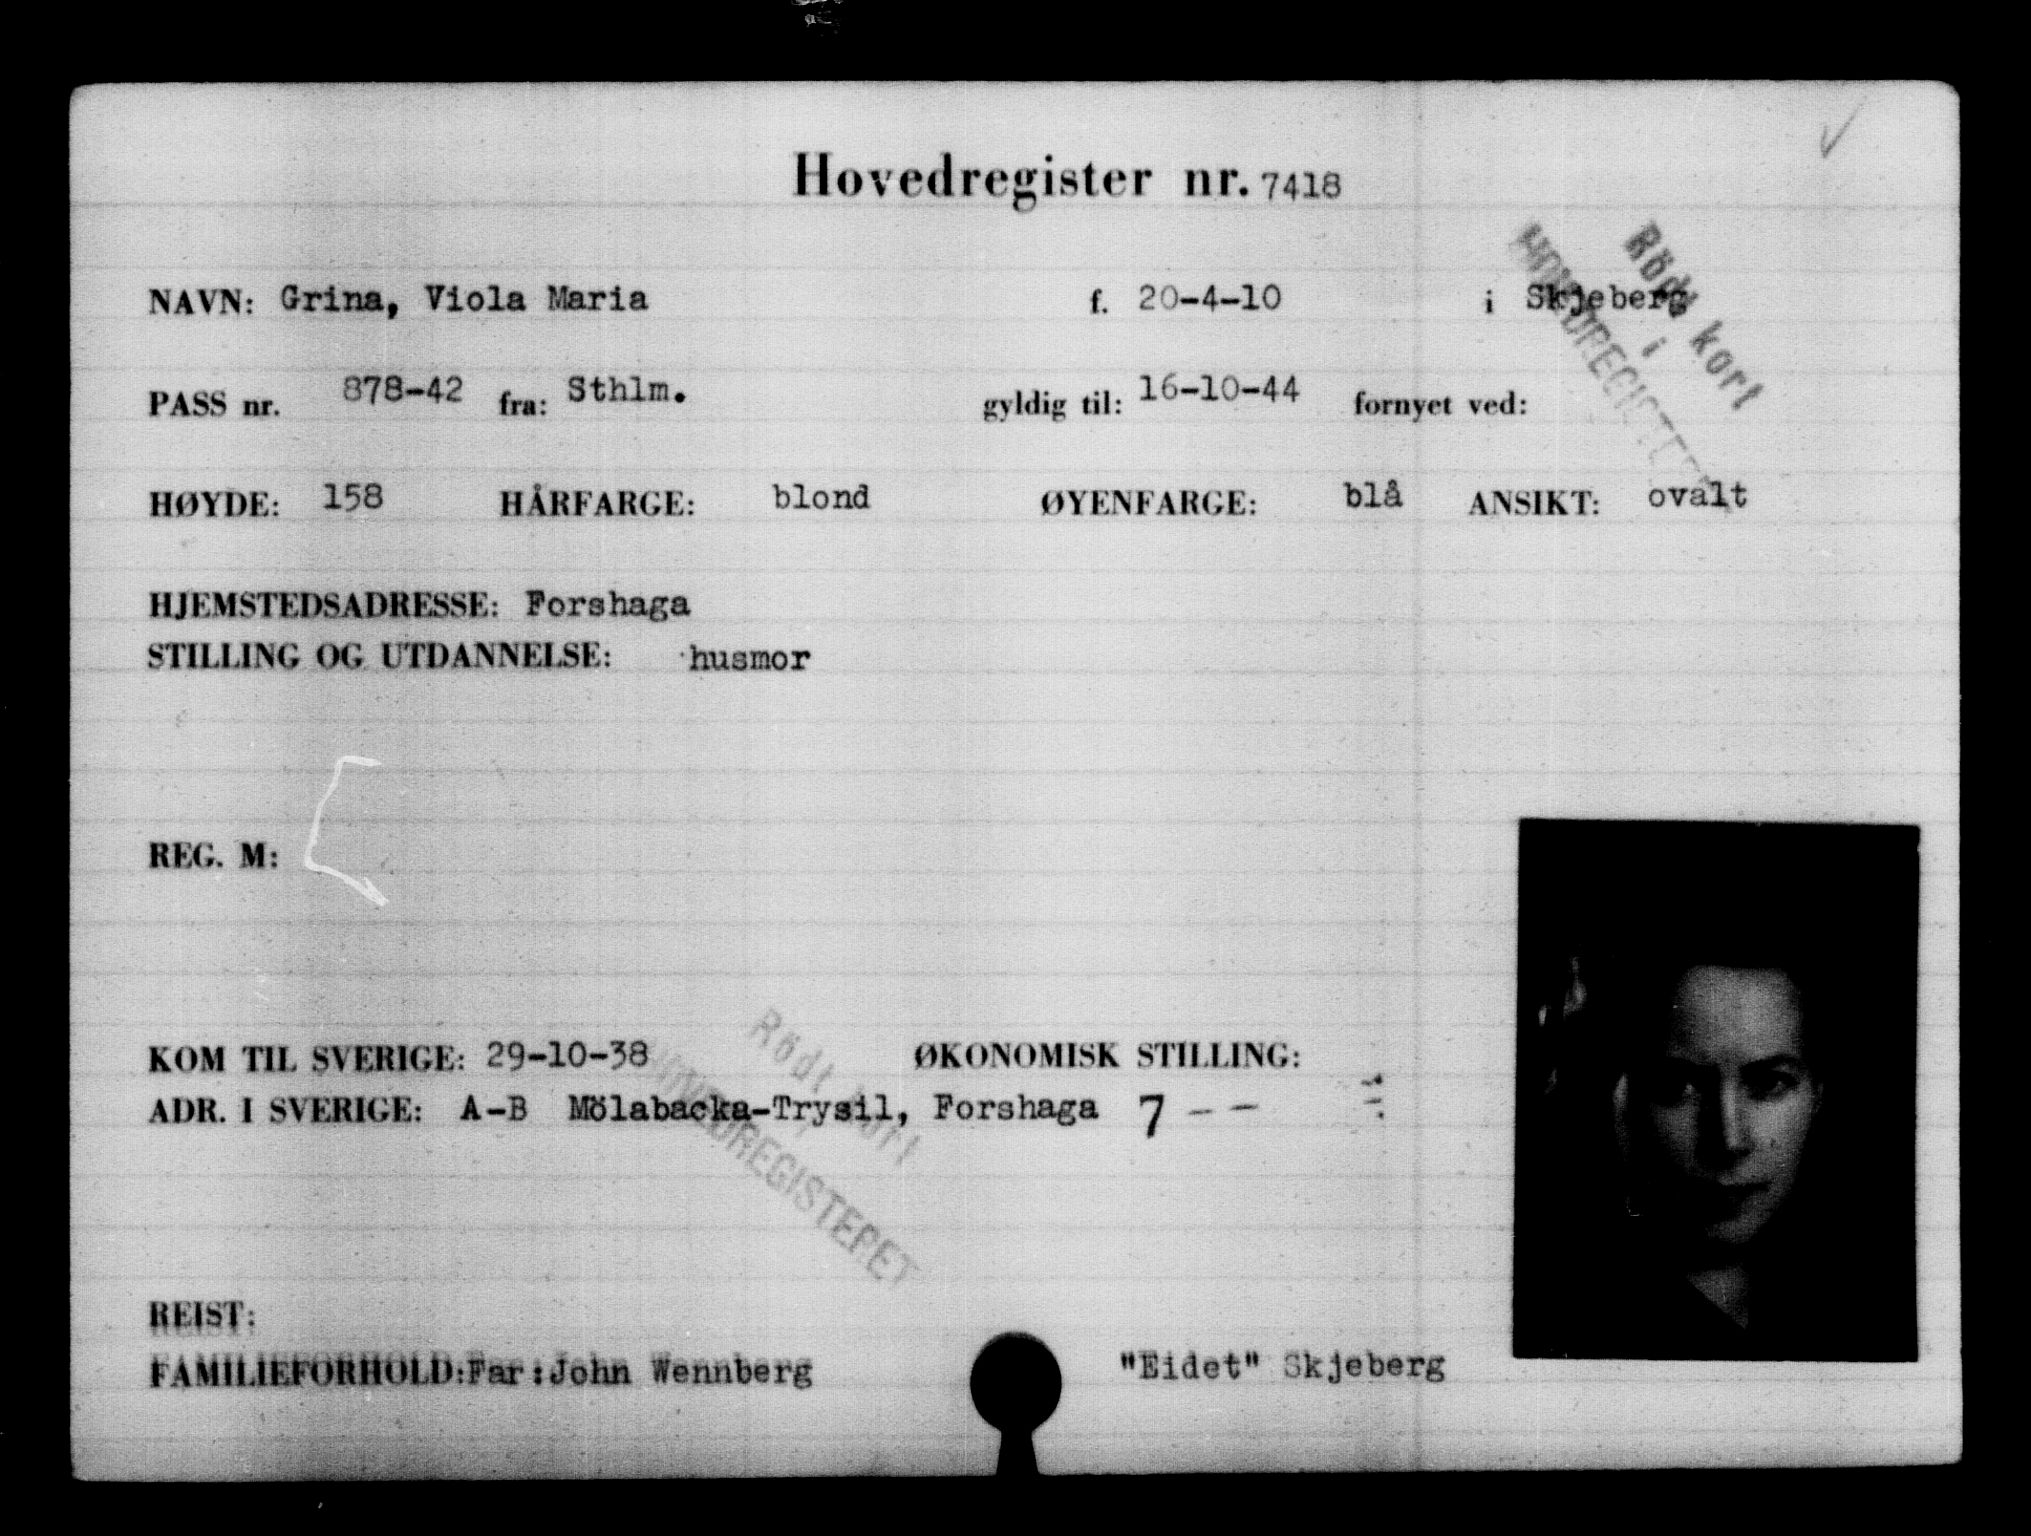 Hovedregister nr. 7418
Rödt kort
i
HOVEDREGISTERET
NAVN: Grina, Viola Maria f. 20-4-10 i Skjeberg
PASS nr. 878-42 fra: Sthlm. gyldig til: 16-10-44 fornyet ved:
HØYDE: 158 HÅRFARGE: blond ØYENFARGE: blå ANSIKT: ovalt
HJEMSTEDSADRESSE: Forshaga
STILLING OG UTDANNELSE: husmor
REG. M:
KOM TIL SVERIGE: 29-10-38 ØKONOMISK STILLING:
ADR. I SVERIGE: A-B Mölabacka-Trysil, Forshaga 7 - -
Rödt kort
i
HOVEDREGISTERET
REIST:
FAMILIEFORHOLD: Far: John Wennberg "Eidet" Skjeberg